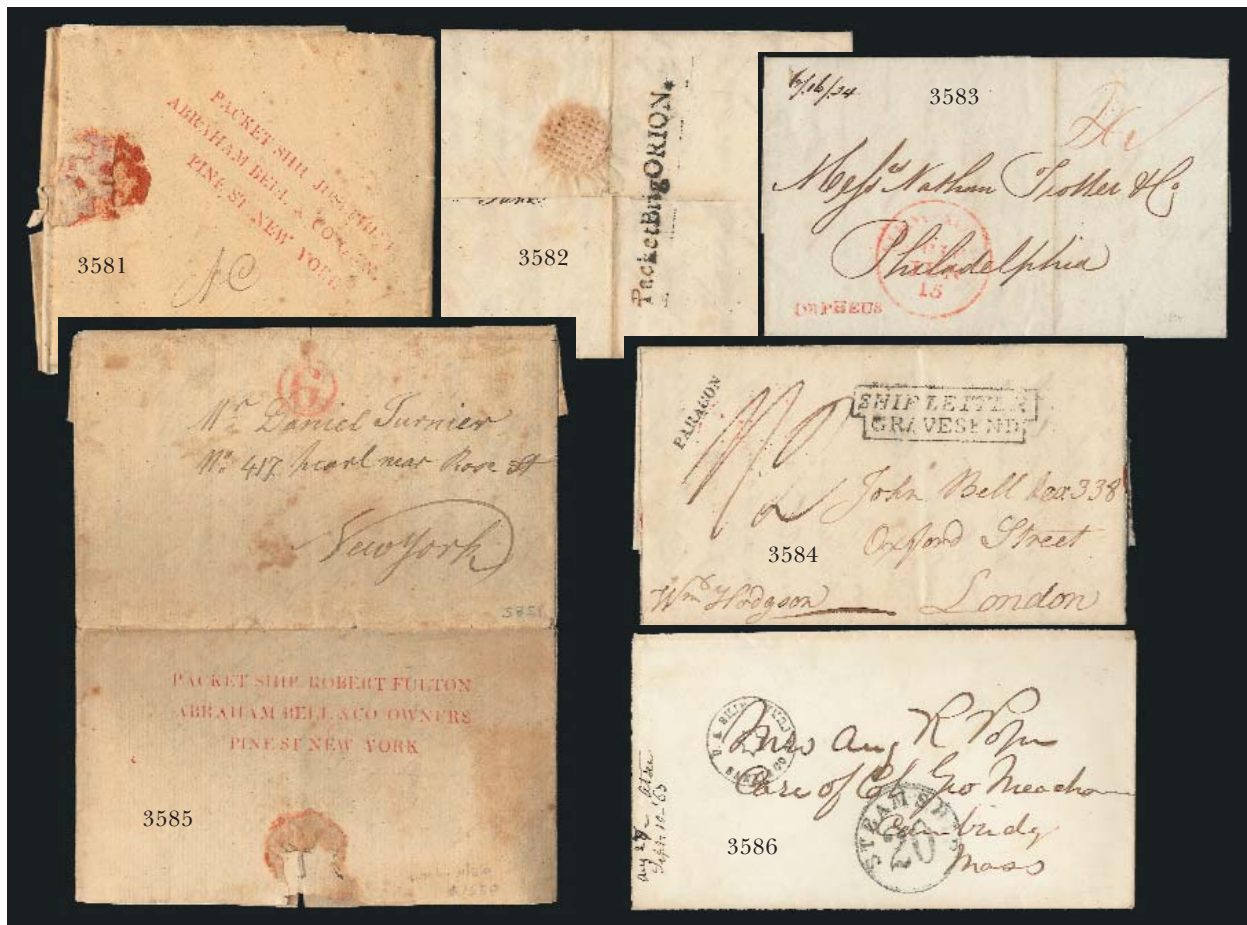 PACKET SHIP
ABRAHAM BELL & CO
PINE ST NEW YORK
3581
NC
3582
Packet Brig ORION.
6/16/34
3583
Messrs Nathan Trotter & Co
Philadelphia
15
ORPHEUS
6
Mr Daniel Turnier
No 417 pearl near Rose St
New York
PACKET SHIP ROBERT FULTON
ABRAHAM BELL & CO OWNERS
PINE ST NEW YORK
3585
PARAGON
SHIP LETTER
GRAVESEND
John Bell 338
Oxford Street
3584
Wm Hodgson
London
Mrs Aug R Pope
Care of Col Geo Meacham
Cambridg
Mass
STEAMSHIP
20
3586